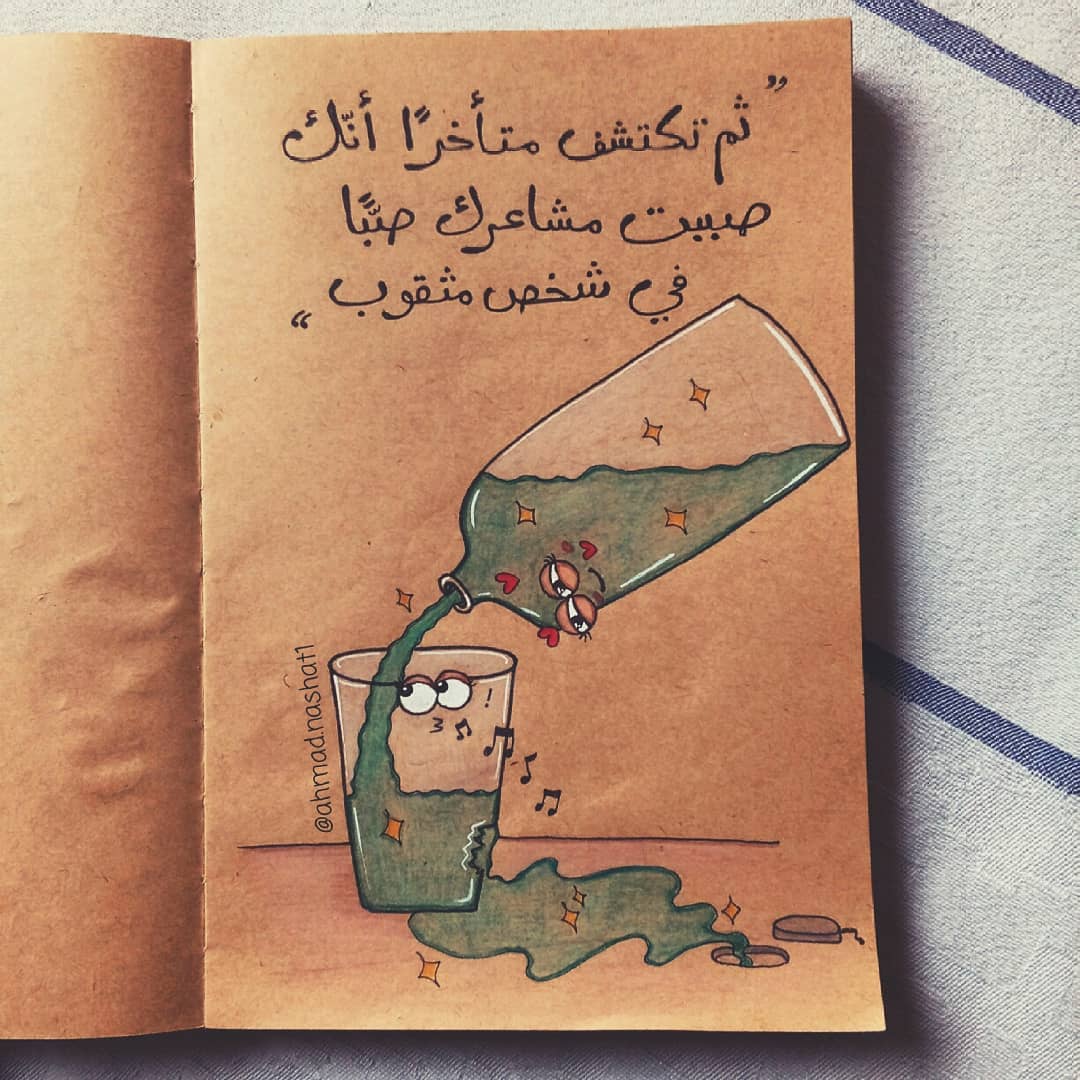 ” ثم تكتشف متأخرًا أنّك
صببت مشاعرك صبًّا
في شخص مثقوب “
@ahmad.nashat1